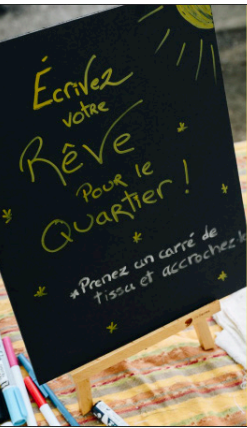 Écrivez
votre
Rêve
Pour le
Quartier !
*Prenez un carré de
tissu et accrochez-le